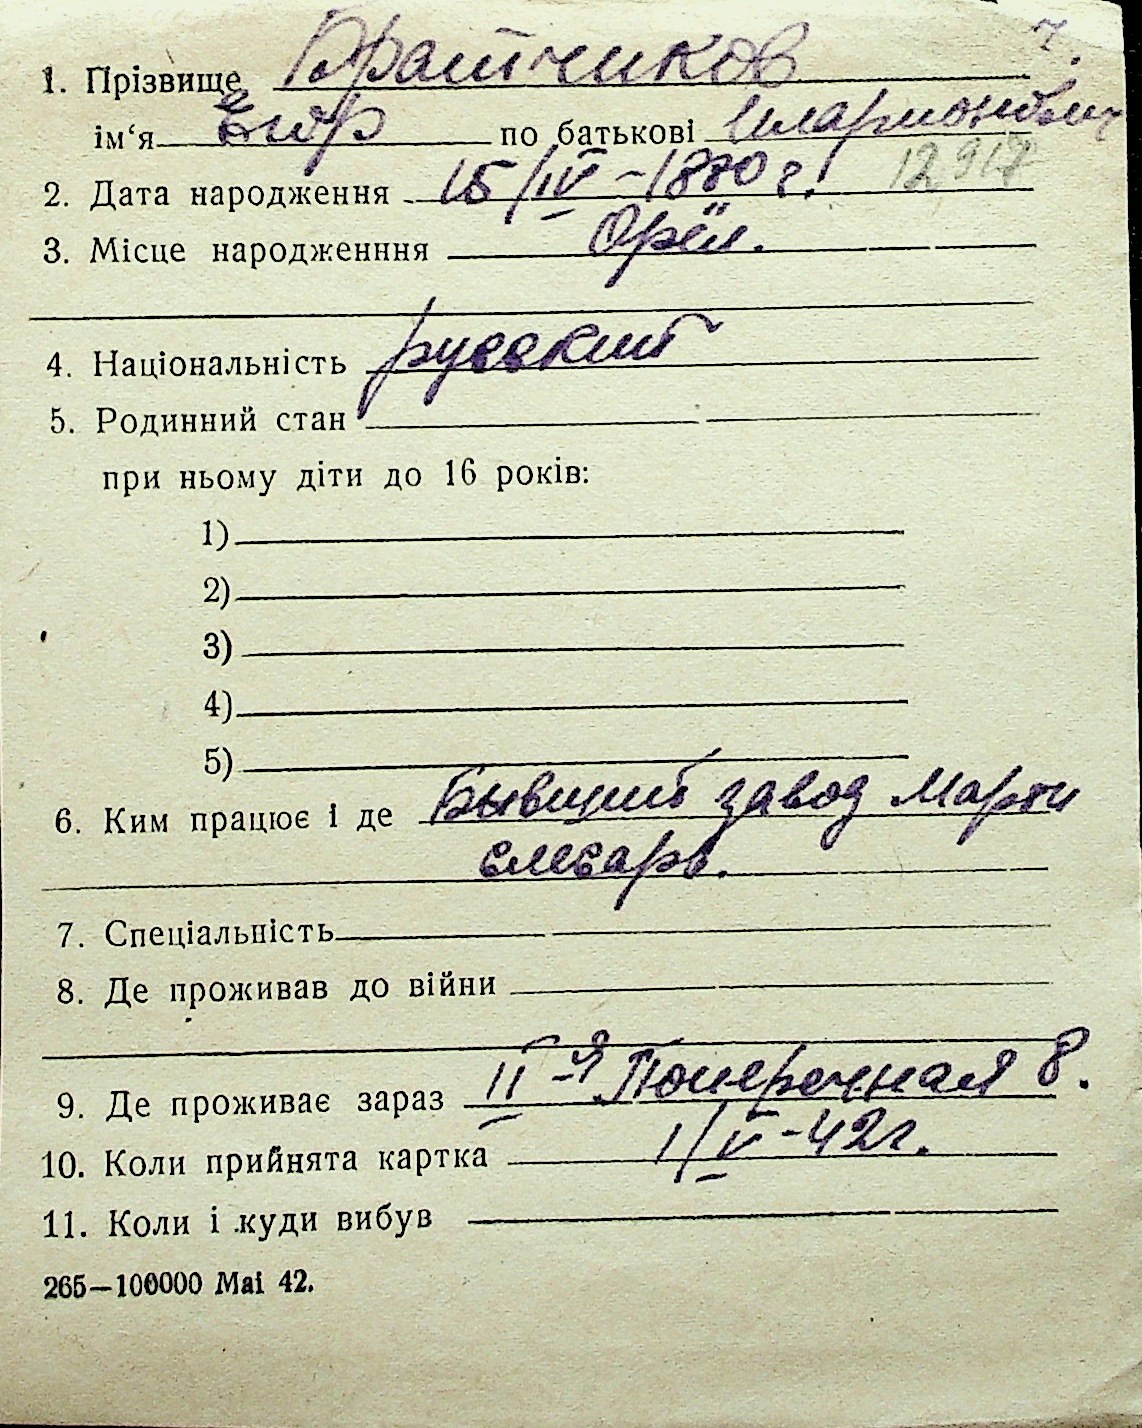 7.
1. Прізвище Братчиков
ім‘я Егор по батькові Иларионович
12917
2. Дата народження 15/IV - 1880 г.
3. Місце народженння Орёл.
4. Національність русский
5. Родинний стан
при ньому діти до 16 років:
1)
2)
3)
4)
5)
6. Ким працює і де Бывший завод Марти
слесарь.
7. Спеціальність
8. Де проживав до війни
9. Де проживає зараз II-я Поперечная 8.
10. Коли прийнята картка 1/V - 42 г.
11. Коли і куди вибув
265—100000 Mai 42.